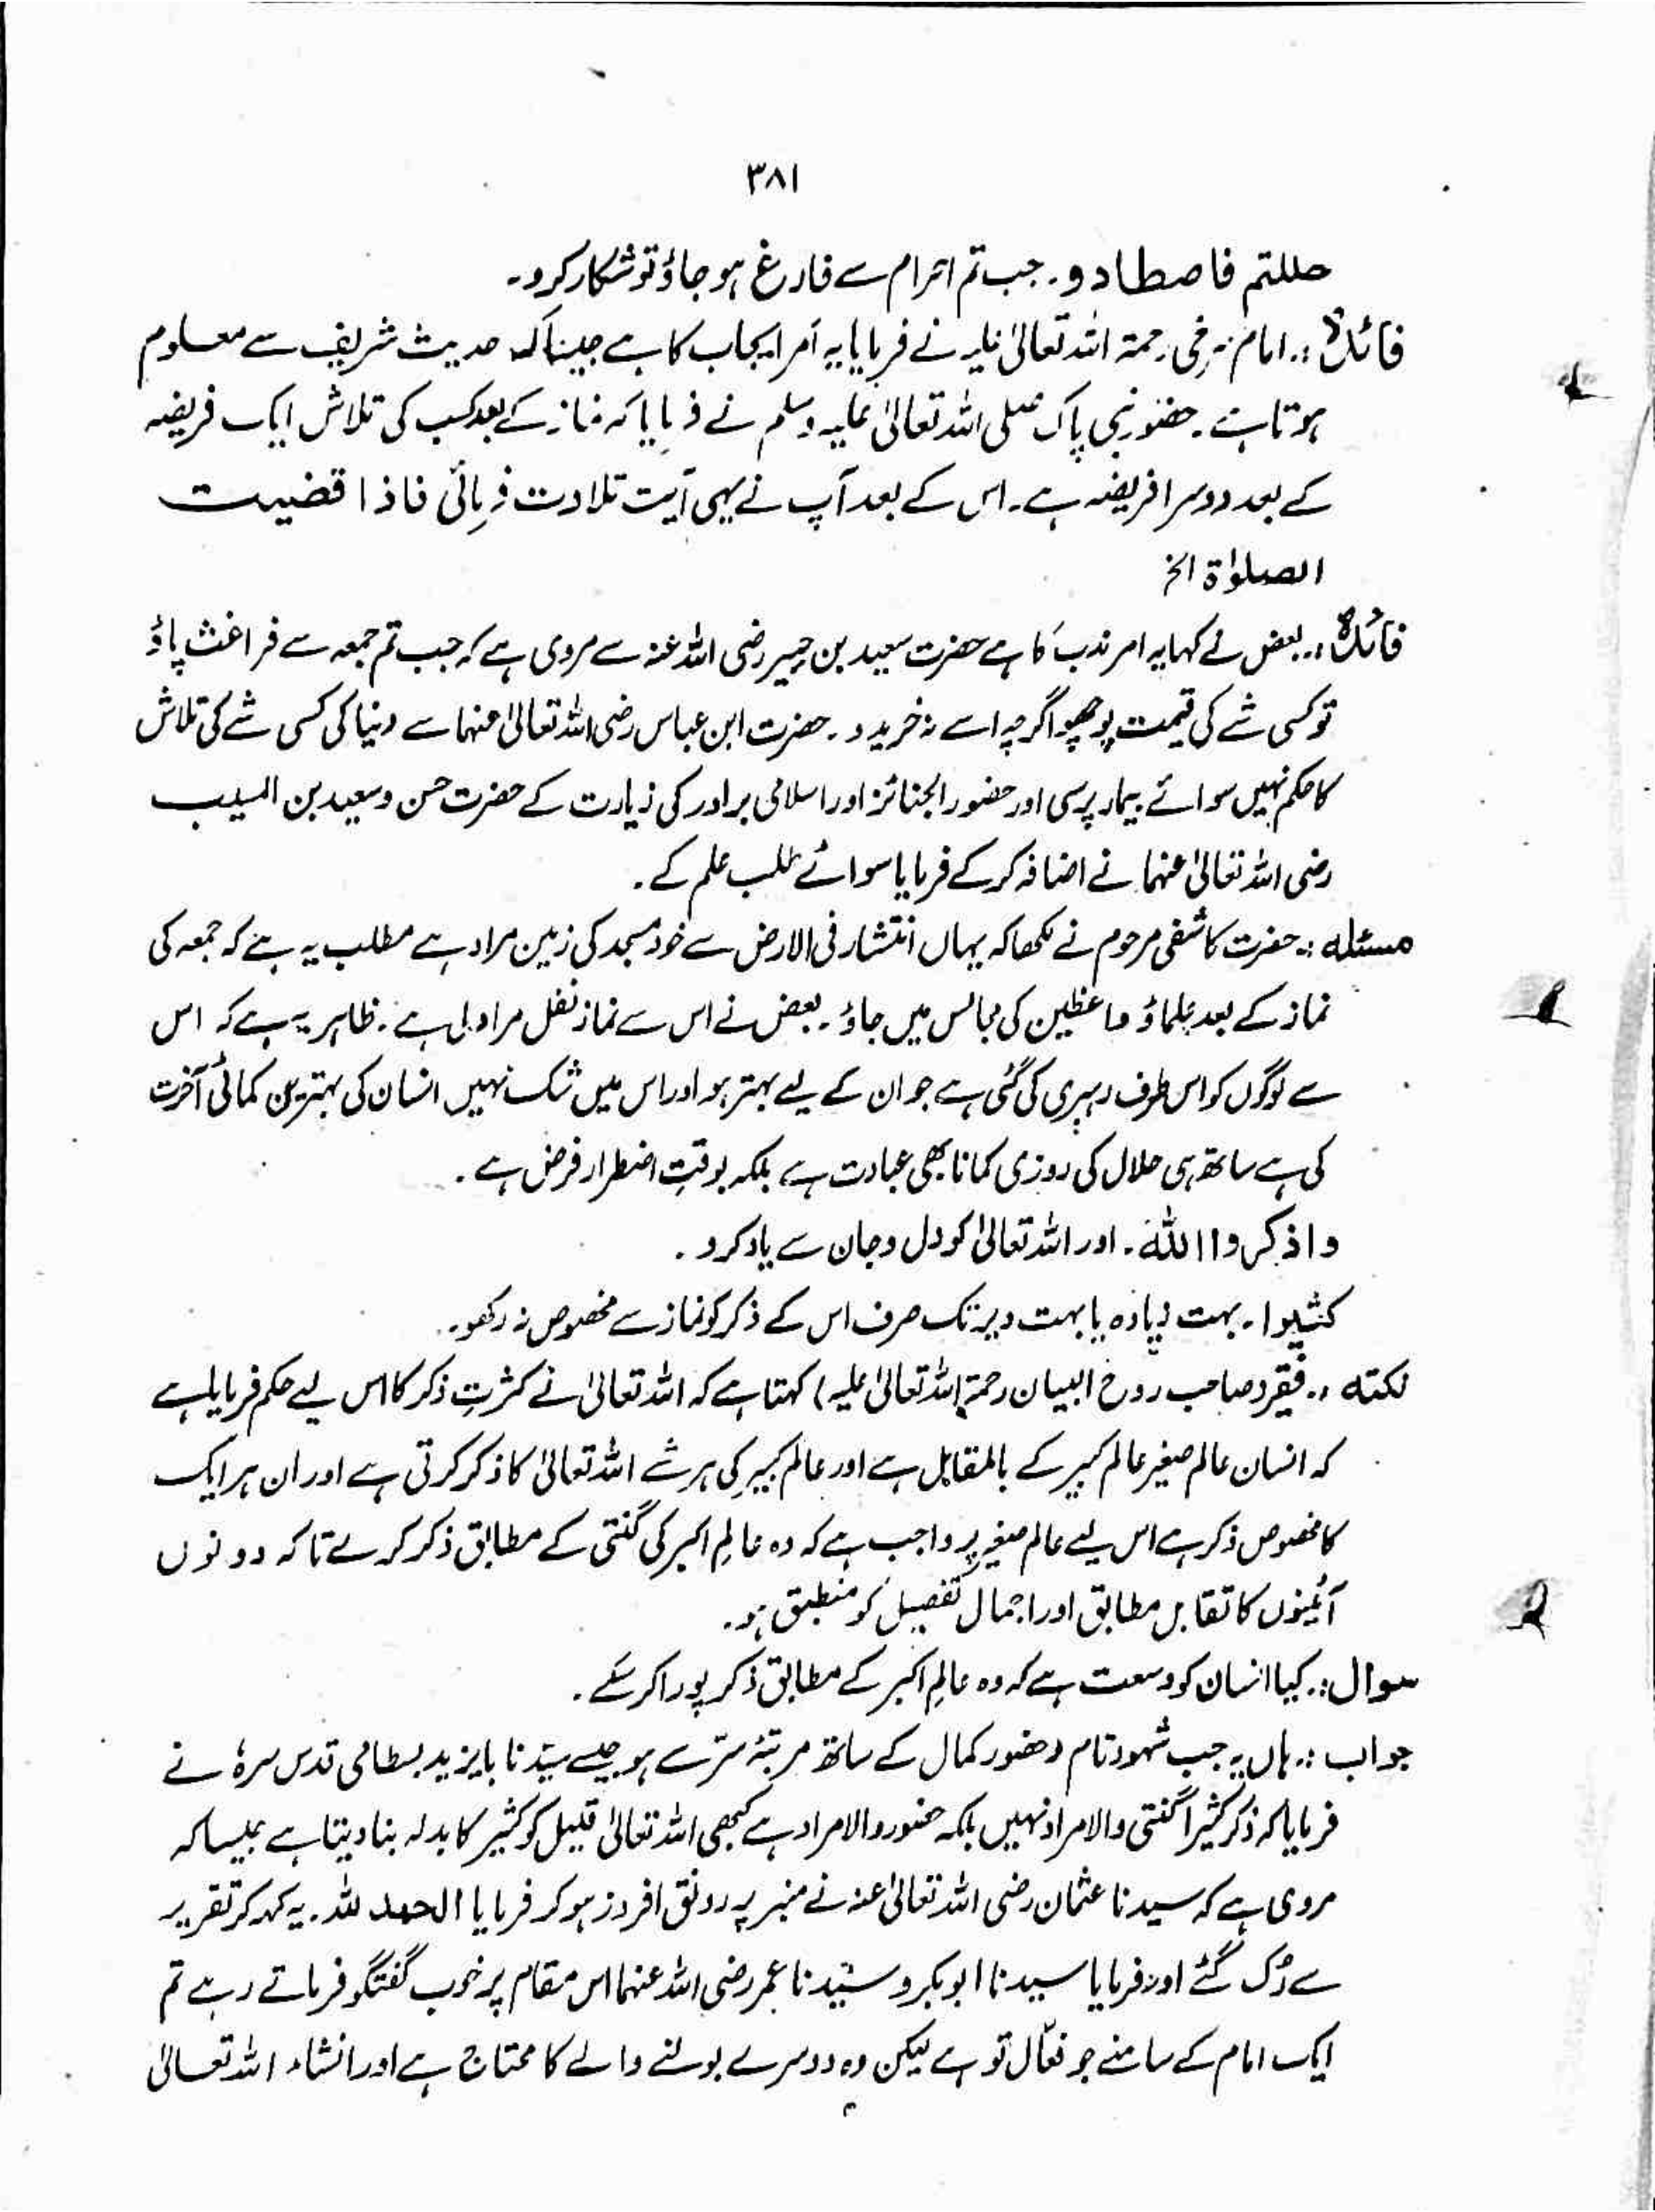 ۳۸۱
حللتم فاصطادو۔ جب تم احرام سے فارغ ہو جاؤ تو شکار کرو۔
فائدہ :۔ امام سرخی رحمۃ اللہ تعالیٰ علیہ نے فرمایا یہ امر ایجاب کا ہے جیسا کہ حدیث شریف سے معلوم
ہوتا ہے۔ حضور نبی پاک صلی اللہ تعالیٰ علیہ وسلم نے فرمایا کہ نماز کے بعد کسب کی تلاش ایک فریضہ
کے بعد دوسرا فریضہ ہے۔ اس کے بعد آپ نے یہی آیت تلاوت فرمائی فاذا قضیت
الصلوٰۃ الخ
فائدہ :۔ بعض نے کہا یہ امر ندب کا ہے حضرت سعید بن جبیر رضی اللہ عنہ سے مروی ہے کہ جب تم جمعہ سے فراغت پاؤ
تو کسی شے کی قیمت پوچھو اگرچہ اسے نہ خریدو۔ حضرت ابن عباس رضی اللہ تعالیٰ عنہما سے دنیا کی کسی شے کی تلاش
کا حکم نہیں سوائے بیمار پرسی اور حضور الجنائز اور اسلامی برادر کی زیارت کے حضرت حسن و سعید بن المسیب
رضی اللہ تعالیٰ عنہما نے اضافہ کر کے فرمایا سوائے طلب علم کے۔
مسئلہ :۔ حضرت کاشفی مرحوم نے لکھا کہ یہاں انتشار فی الارض سے خود مسجد کی زمین مراد ہے مطلب یہ ہے کہ جمعہ کی
نماز کے بعد علماؤ واعظین کی مجالس میں جاؤ۔ بعض نے اس سے نماز نفل مراد لی ہے۔ ظاہر یہ ہے کہ اس
سے لوگوں کو اس طرف رہبری کی گئی ہے جو ان کے لیے بہتر ہو اور اس میں شک نہیں انسان کی بہترین کمائی آخرت
کی ہے ساتھ ہی حلال کی روزی کمانا بھی عبادت ہے بلکہ بوقتِ اضطرار فرض ہے۔
واذکروا اللہ۔ اور اللہ تعالیٰ کو دل و جان سے یاد کرو۔
کثیرا۔ بہت زیادہ یا بہت دیر تک صرف اس کے ذکر کو نماز سے مخصوص نہ رکھو۔
نکتہ :۔ فقیر (صاحب روح البیان رحمۃ اللہ تعالیٰ علیہ) کہتا ہے کہ اللہ تعالیٰ نے کثرتِ ذکر کا اس لیے حکم فرمایا ہے
کہ انسان عالم صغیر عالم کبیر کے بالمقابل ہے اور عالم کبیر کی ہر شے اللہ تعالیٰ کا ذکر کرتی ہے اور ان ہر ایک
کا مخصوص ذکر ہے اس لیے عالم صغیر پر واجب ہے کہ وہ عالمِ اکبر کی گنتی کے مطابق ذکر کرے تاکہ دونوں
آئینوں کا تقابل مطابق اور اجمال تفصیل کو منطبق ہو۔
سوال :۔ کیا انسان کو وسعت ہے کہ وہ عالمِ اکبر کے مطابق ذکر پورا کر سکے۔
جواب :۔ ہاں یہ جب شہود تام و حضور کمال کے ساتھ مرتبۂ سرّ سے ہو جیسے سیّدنا بایزید بسطامی قدس سرہٗ نے
فرمایا کہ ذکر کثیراً گنتی والا مراد نہیں بلکہ حضور والا مراد ہے کبھی اللہ تعالیٰ قلیل کو کثیر کا بدلہ بنا دیتا ہے جیسا کہ
مروی ہے کہ سیدنا عثمان رضی اللہ تعالیٰ عنہ نے منبر پر رونق افروز ہو کر فرمایا الحمد للہ۔ یہ کہہ کر تقریر
سے رُک گئے اور فرمایا سیدنا ابوبکر و سیّدنا عمر رضی اللہ عنہما اس مقام پر خوب گفتگو فرماتے رہے تم
ایک امام کے سامنے جو فعّال تو ہے لیکن وہ دوسرے بولنے والے کا محتاج ہے اور انشاء اللہ تعالیٰ